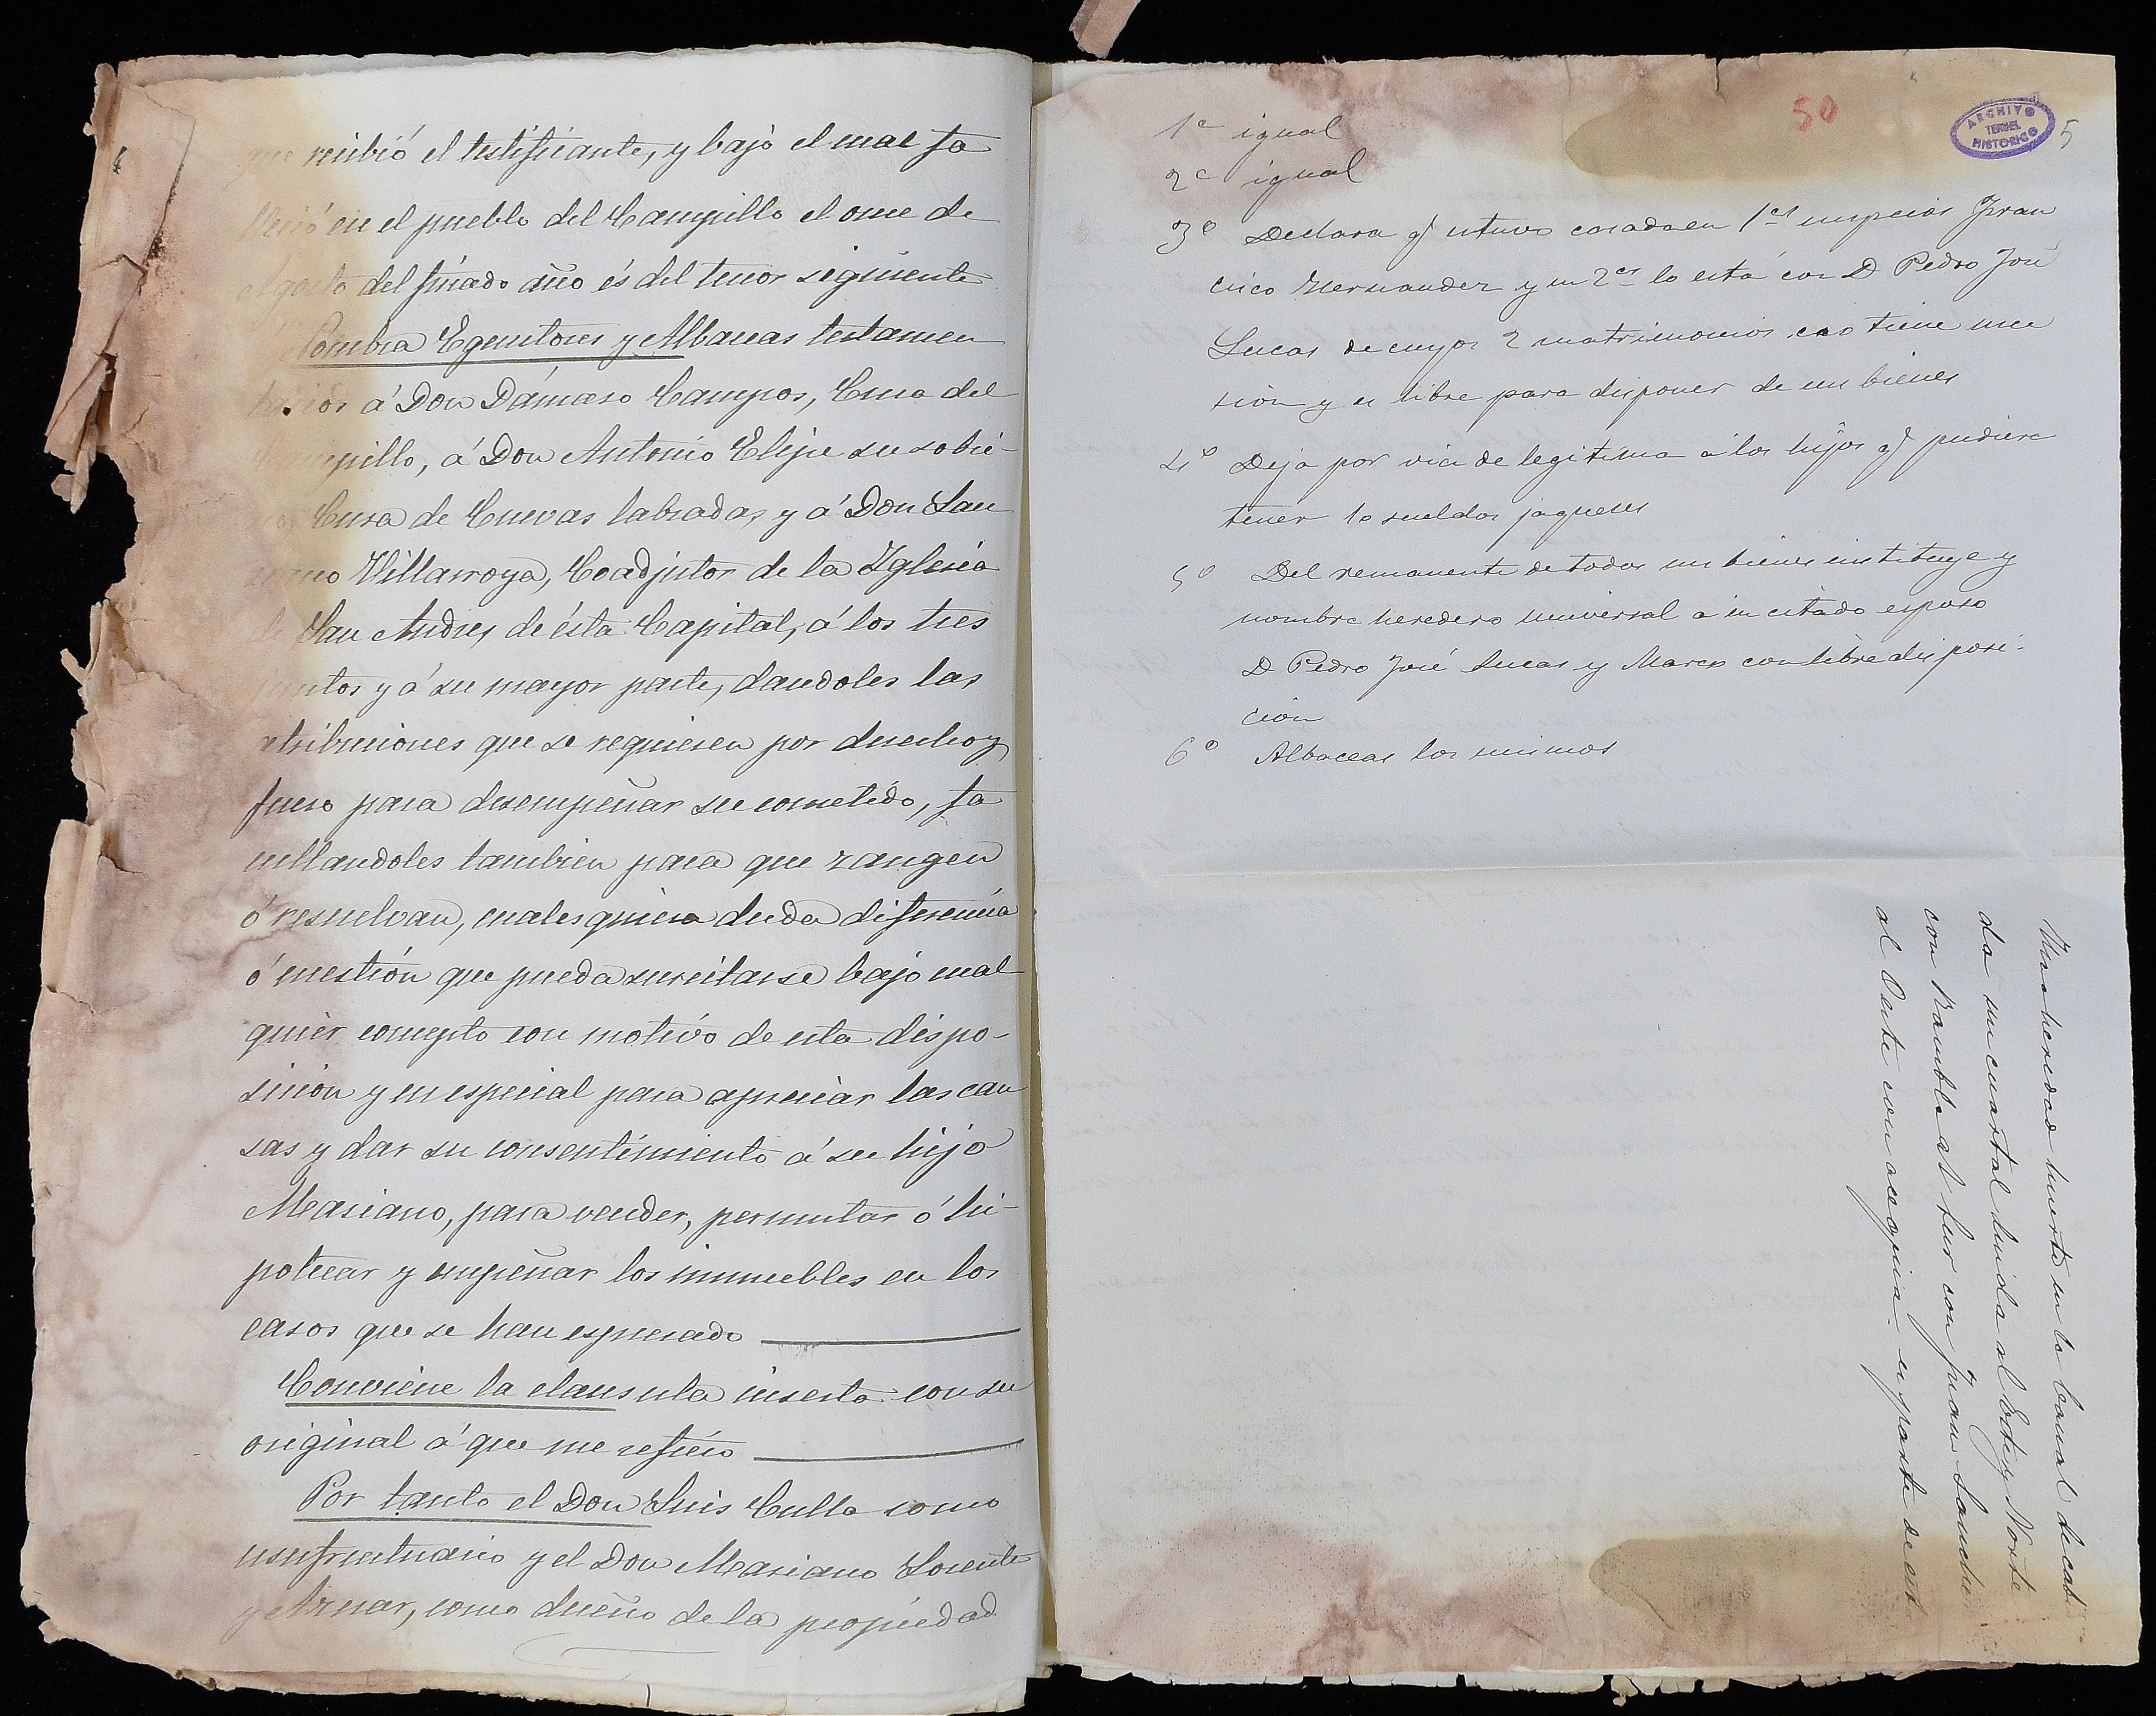 que recibió el testificante, y bajo el cual fa
lleció en el pueblo del Campillo el once de
Agosto del finado año és del tenor siguiente
Nombra Egecutores y Albaceas testamen
tarios á Don Dámaso Campos, Cura del
Campillo, á Don Antonio Elipe su sobri-
no, Cura de Cuevas labradas, y á Don
Villarroya, Coadjutor de la Yglesia
de San Andres de ésta Capital, á los tres
juntos y á su mayor parte, dandoles las
atribuciones que se requieren por derecho y
fuero para desempeñar su cometido, fa
cultandoles tambien para que zangen
ó resuelvan, cualesquiera duda diferencia
ó cuestión que pueda suscitarse bajo cual
quier concepto con motivo de esta dispo-
sición y en especial para apreciar las cau
sas y dar su consentimiento á su hijo
Mariano, para vender, permutar ó hi-
potecar y empeñar los inmuebles en los
casos que se han espresado
Conviene la clausula inserta con su
original á que me refiero
Por tanto el Don Luis Culla como
usufructuario y el Don Mariano Lorente
y Aznar, como dueño de la propiedad
50
ARCHIVO
TERUEL
HISTORICO
5
1ª igual
2ª igual
3º Declara q estuvo casada en 1as nupcias Fran
cisco Hernandez y en 2as lo está con D Pedro José
Lucas de cuyos 2 matrimonios no tiene suce
sion y es libre para disponer de sus bienes
4º Deja por via de legitima á los hijos q pudiere
tener 10 sueldos jaqueses
5º Del remanente de todos sus bienes instituye y
nombra heredero universal á su citado esposo
D Pedro José Lucas y Marco con libre disposi-
cion
6º Albaceas los mismos
Una heredad huerta en la Canal de
da un cuartal linda al Este y Norte
con Rambla al Sur con Juan Sanchez
al Oeste con acequia- es parte de esta